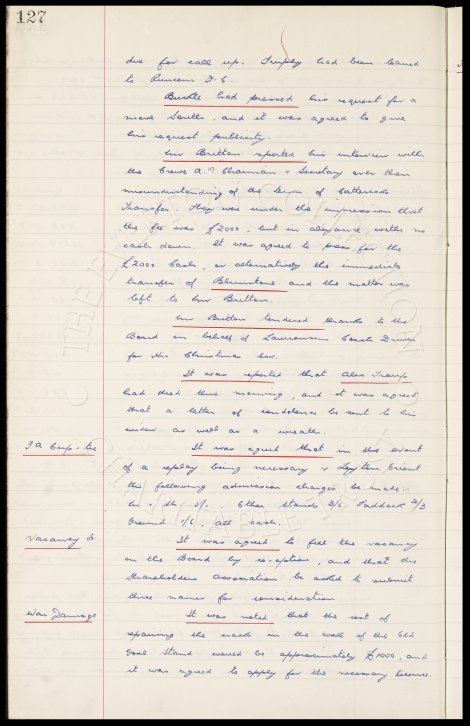 127
due for call up. had been loaned
to Runcorn F.C.
Burkle had pressed his request for a
move South, and it was agreed to give
his request publicity.
Mr Britton reported his interview with
the Crewe A. Chairman & Secretary over their
misunderstanding of the terms of
Transfer. They were under the impression that
the fee was £2000, but in abeyance with no
cash down. It was agreed to press for the
£2000 cash, or alternatively the immediate
transfer of Blunstone and the matter was
left to Mr Britton.
Mr Britton tendered thanks to the
Board on behalf of Lawrensons Coach Driver
for the Christmas box.
It was reported that Alec Troup
had died this morning, and it was agreed
that a letter of condolence be sent to his
widow as well as a wreath.
F A Cup-tie It was agreed that in the event
of a replay being necessary v Leyton Orient
the following admission charges be made:
Other Stands 3/6 Paddock 2/3
Ground 1/6, all cash.
Vacancy It was agreed to fill the vacancy
on the Board by co-option, and that the
Shareholders Association be asked to submit
three names for consideration
War Damage It was noted that the cost of
repairing the cracks in the wall of the Old
Goal Stand would be approximately £1000, and
it was agreed to apply for the necessary licence.